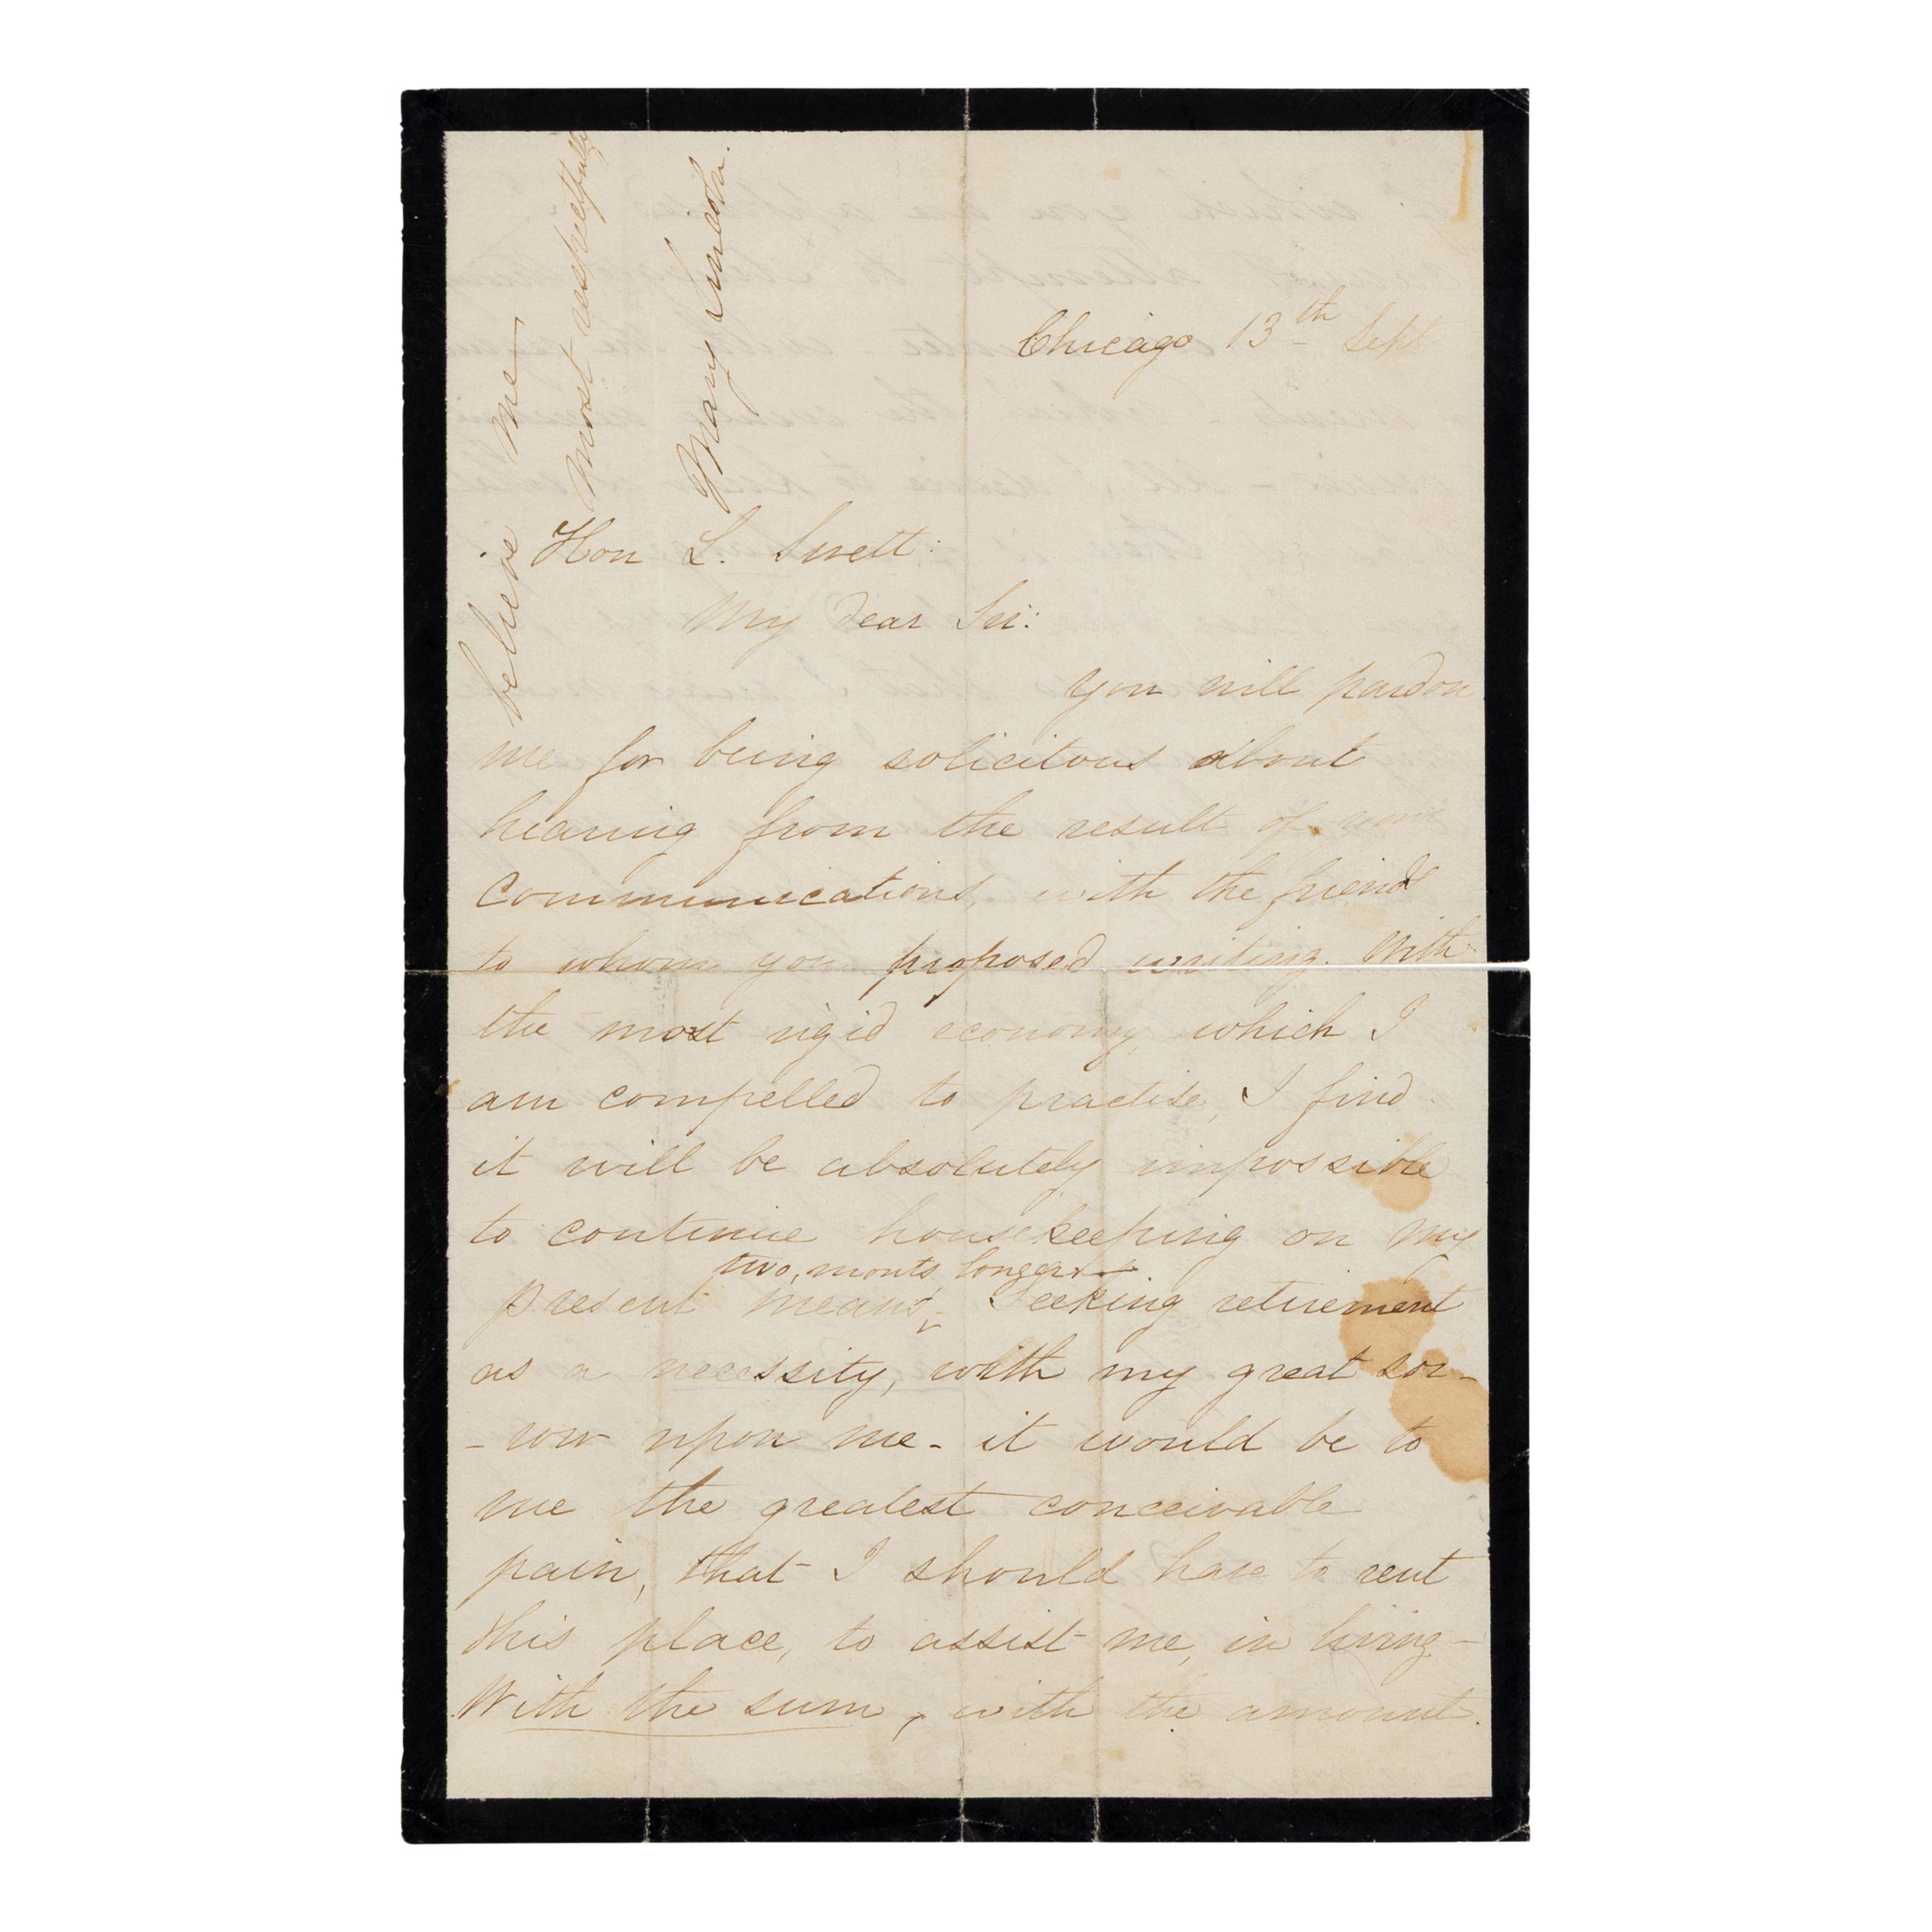 Chicago 13th Sept
Hon L. Swett:
My dear Sir:
You will pardon
me for being solicitous about
hearing from the result of your
communications, with the friends
to whom you proposed writing. With
the most rigid economy, which I
am compelled to practise, I find
it will be absolutely impossible
to continue housekeeping on my
two, monts, longer -
present means, - Seeking retirement
as a necessity, with my great sor-
-row upon me - it would be to
me the greatest conceivable
pain, that I should have to rent
this place, to assist me, in living -
With the sum, with the amount
believe me
Most respectfully
Mary Lincoln.